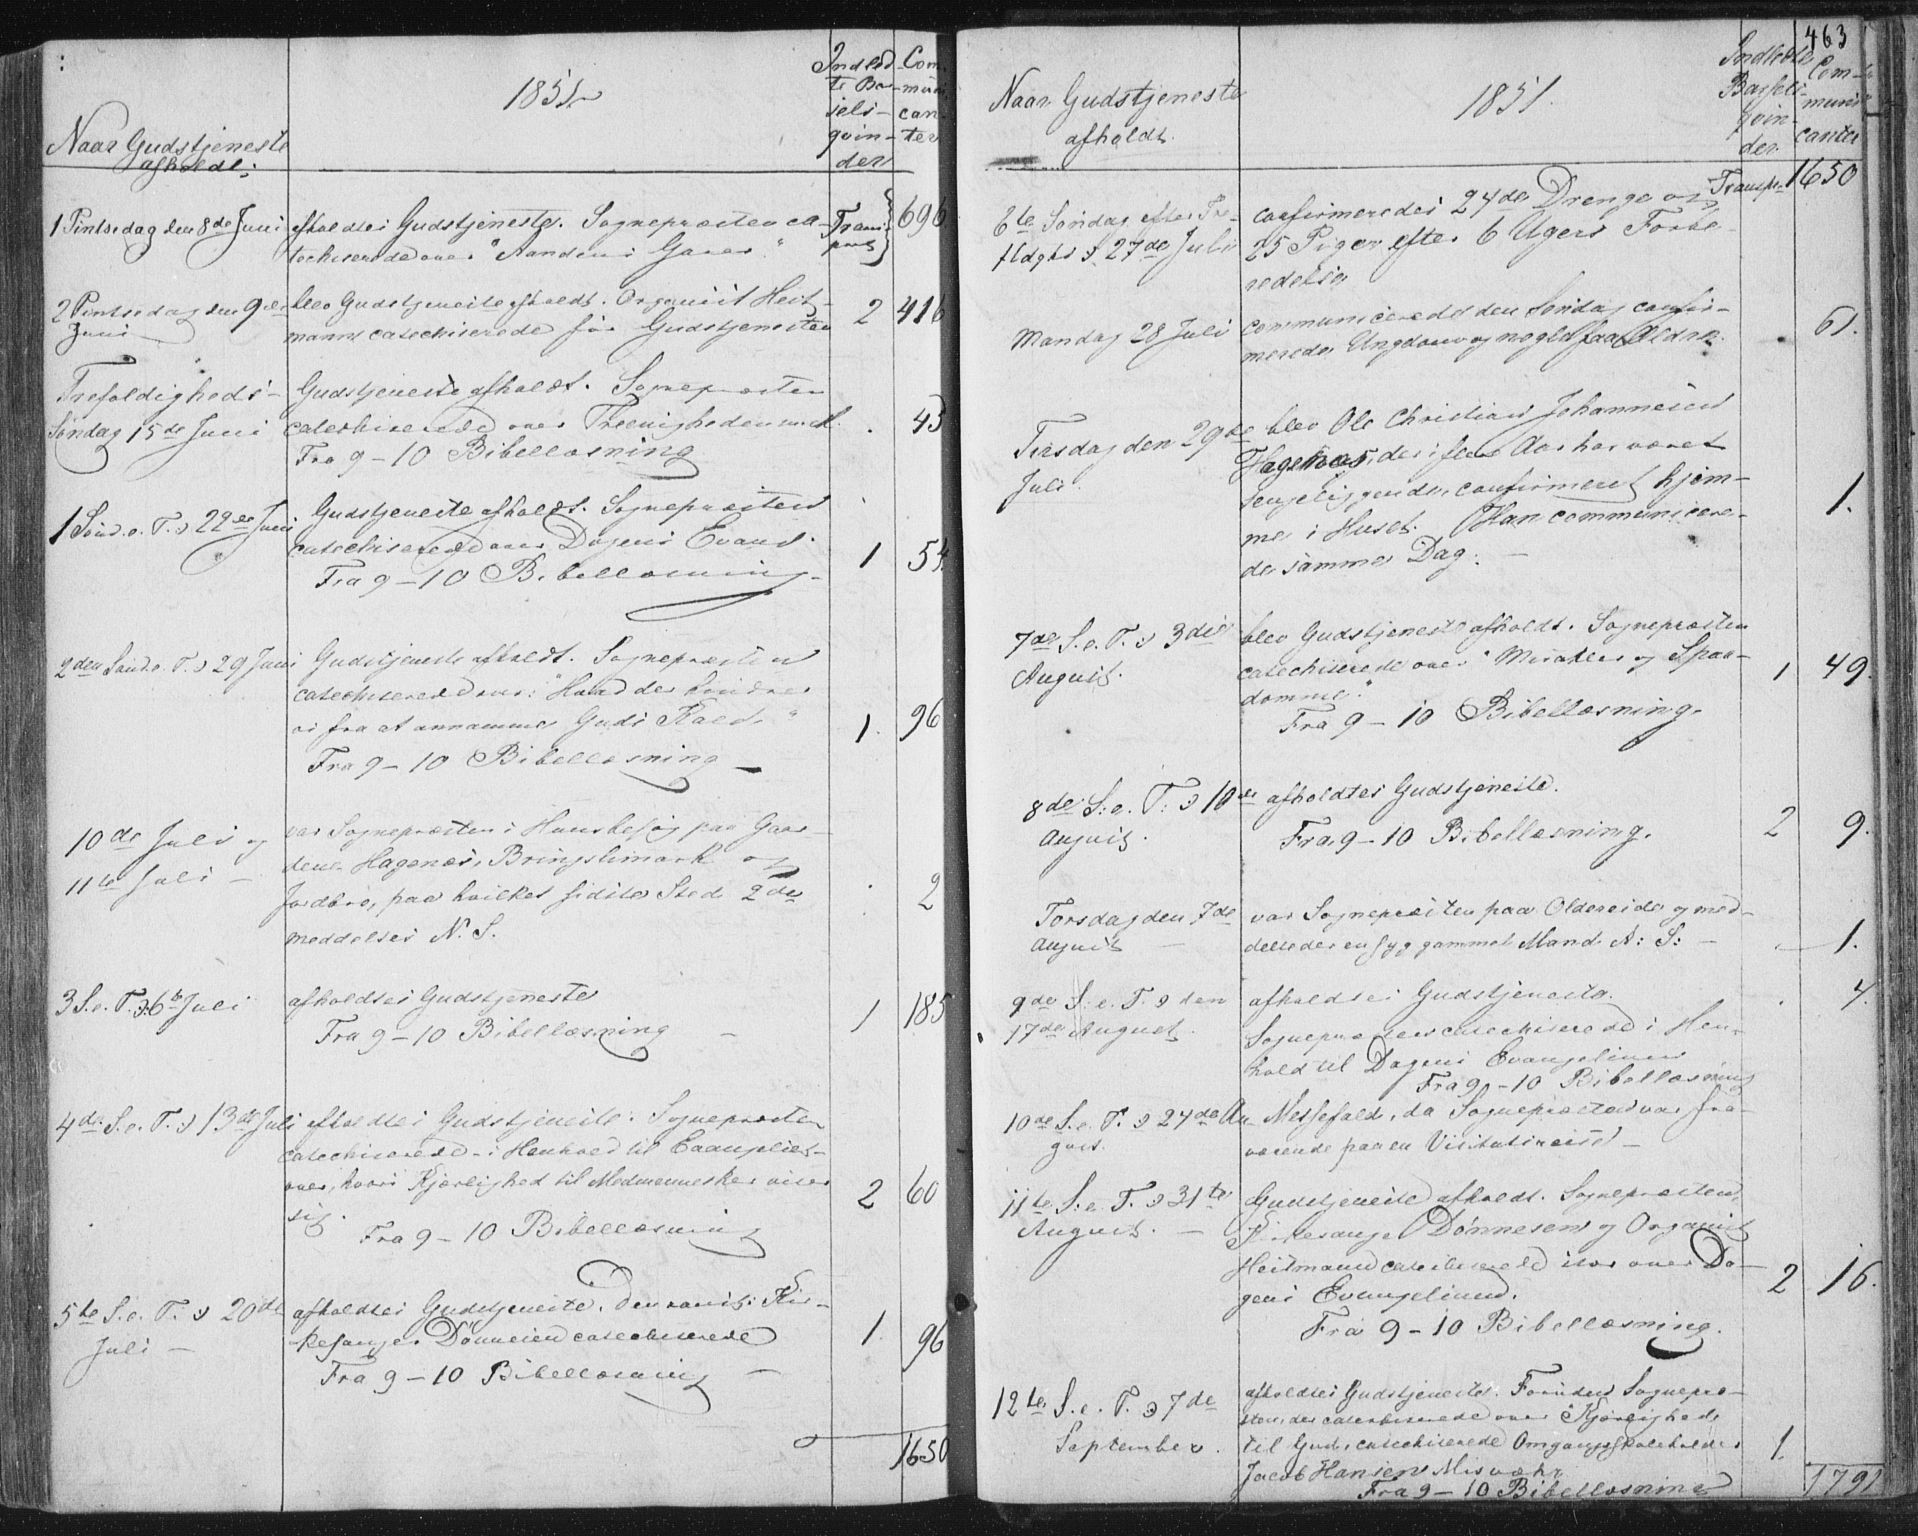 1851
Naar Gudstjeneste
afholdt:
Indled-
te Bar-
sels-
qvin-
der
Com-
muni-
can-
ter
1 Pintsedag den 8de Juni
afholdtes Gudstjeneste. Sognepræsten ca-
techiserede over "Aandens Gaver."
Trans-
port
696
2 Pintsedag den 9de
Juni
blev Gudstjeneste afholdt. Organist Heit-
mann catechiserede før Gudstjenesten
2 416
Trefoldigheds-
Søndag 15de Juni
Gudstjeneste afholdt. Sognepræsten
catechiserede over Treenigheden
Fra 9-10 Bibellæsning
. 43
1 Sønd. e. T. 22de Juni
Gudstjeneste afholdt. Sognepræsten
catechiserede over Dagens Evang.
Fra 9-10 Bibellæsning
1 54
2den Sønd. e. T. 29 Juni
Gudstjeneste afholdt. Sognepræsten
catechiserede over: "Hvad der hindrer
os fra at annamme Guds Kald."
Fra 9-10 Bibellæsning
1. 96
10de Juli og
11te Juli -
var Sognepræsten i Huusbesøg paa Gaar-
dene Hagenæs, Bringslimark og
Jordbro, paa hvilket sidste Sted 2de
meddeltes N. S.
. 2
3 S. e. T. 6te Juli
afholdtes Gudstjeneste
Fra 9-10 Bibellæsning -
1 185
4de S. e. T. 13de Juli
afholdtes Gudstjeneste. Sognepræsten
catechiserede i Henhold til Evangeliet
over, hvori Kjærlighed til Medmennesker viser
sig.
Fra 9-10 Bibellæsning
2 60
5te S. e. T. 20de
Juli -
afholdtes Gudstjeneste. Den const: Kir-
kesanger Dønnesen catechiserede
Fra 9-10 Bibellæsning -
1. 96
1650
463
Naar Gudstjeneste
afholdt.
1851.
Indledte
Barsel-
qvin-
der.
Com-
muni-
canter
Transp. 1650
6te Søndag efter Tre-
fldghd 27de Juli
confirmeredes 24de Drenge og
25 Piger efter 6 Ugers Forbe-
redelse
Mandag 28 Juli
communicerede den Søndag confir-
merede Ungdom og nogle faa Ældre.
. 61.
Tirsdag den 29de
Juli.
blev Ole Christian Johannesen
Hagenæs, der i flere Aar har været
sengeliggende, confirmeret hjem-
me i Huset. Han communicere-
de samme Dag. -
1.
7de S. e. T. 3die
August.
blev Gudstjeneste afholdt. Sognepræsten
catechiserede over "Mirakler og Spaa-
domme."
Fra 9-10 Bibellæsning.
1 49.
8de S: e. T: 10de
August.
afholdtes Gudstjeneste.
Fra 9-10 Bibellæsning.
2 9.
Torsdag den 7de
August -
var Sognepræsten paa Oldereide og med-
delte der en syg gammel Mand A: S: -
. 1.
9de S. e. T. den
17de August.
afholdtes Gudstjeneste.
Sognepræsten catechiserede i Hen-
hold til Dagens Evangelium
Fra 9-10 Bibellæsning
. 4.
10de S. e. T. 24de Au-
gust.
Messefald, da Sognepræsten var fra-
værende paa en Visitatsreise -
11te S. e. T. 31te
August. -
Gudstjeneste afholdt. Sognepræsten,
Kirkesanger Dønnesen og Organist
Heitmann catechiserede over Da-
gens Evangelium.
Fra 9-10 Bibellæsning.
2 16.
12te S. e. T. 7de
September.
afholdtes Gudstjeneste. Foruden Sognepræ-
sten, der catechiserede over "Kjærlighed
til Gud, catechiserede Omgangsskoleholder
Jacob Hansen Misvær
Fra 9-10 Bibellæsning
1.
1791